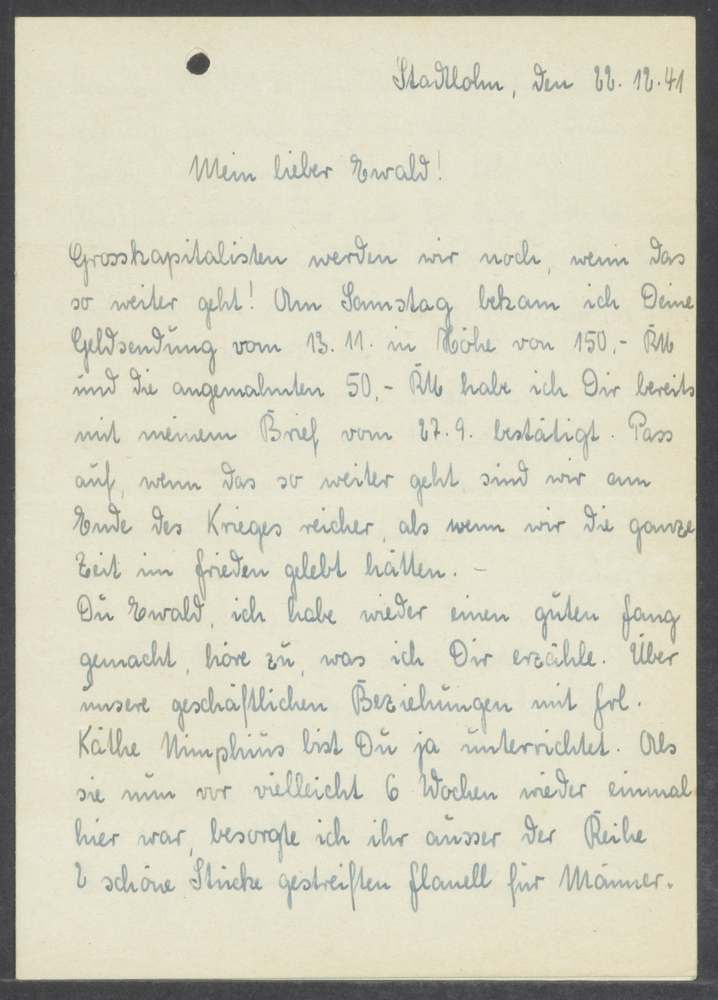 Stadtlohn, den 22.12.41
Mein lieber Ewald!
Grosskapitalisten werden wir noch, wenn das
so weiter geht! Am Samstag bekam ich Deine
Geldsendung vom 13.11. in Höhe von 150,- RM
und die angemahnten 50,- RM habe ich Dir bereits
mit meinem Brief vom 27.9. bestätigt. Pass
auf, wenn das so weiter geht, sind wir am
Ende des Krieges reicher, als wenn wir die ganze
Zeit im Frieden gelebt hätten. -
Du Ewald, ich habe wieder einen guten Fang
gemacht, höre zu, was ich Dir erzähle. Über
unsere geschäftlichen Beziehungen mit Frl.
Käthe Nimphius bist Du ja unterrichtet. Als
sie nun vor vielleicht 6 Wochen wieder einmal
hier war, besorgte ich ihr ausser der Reihe
2 schöne Stücke gestreiften Flanell für Männer-